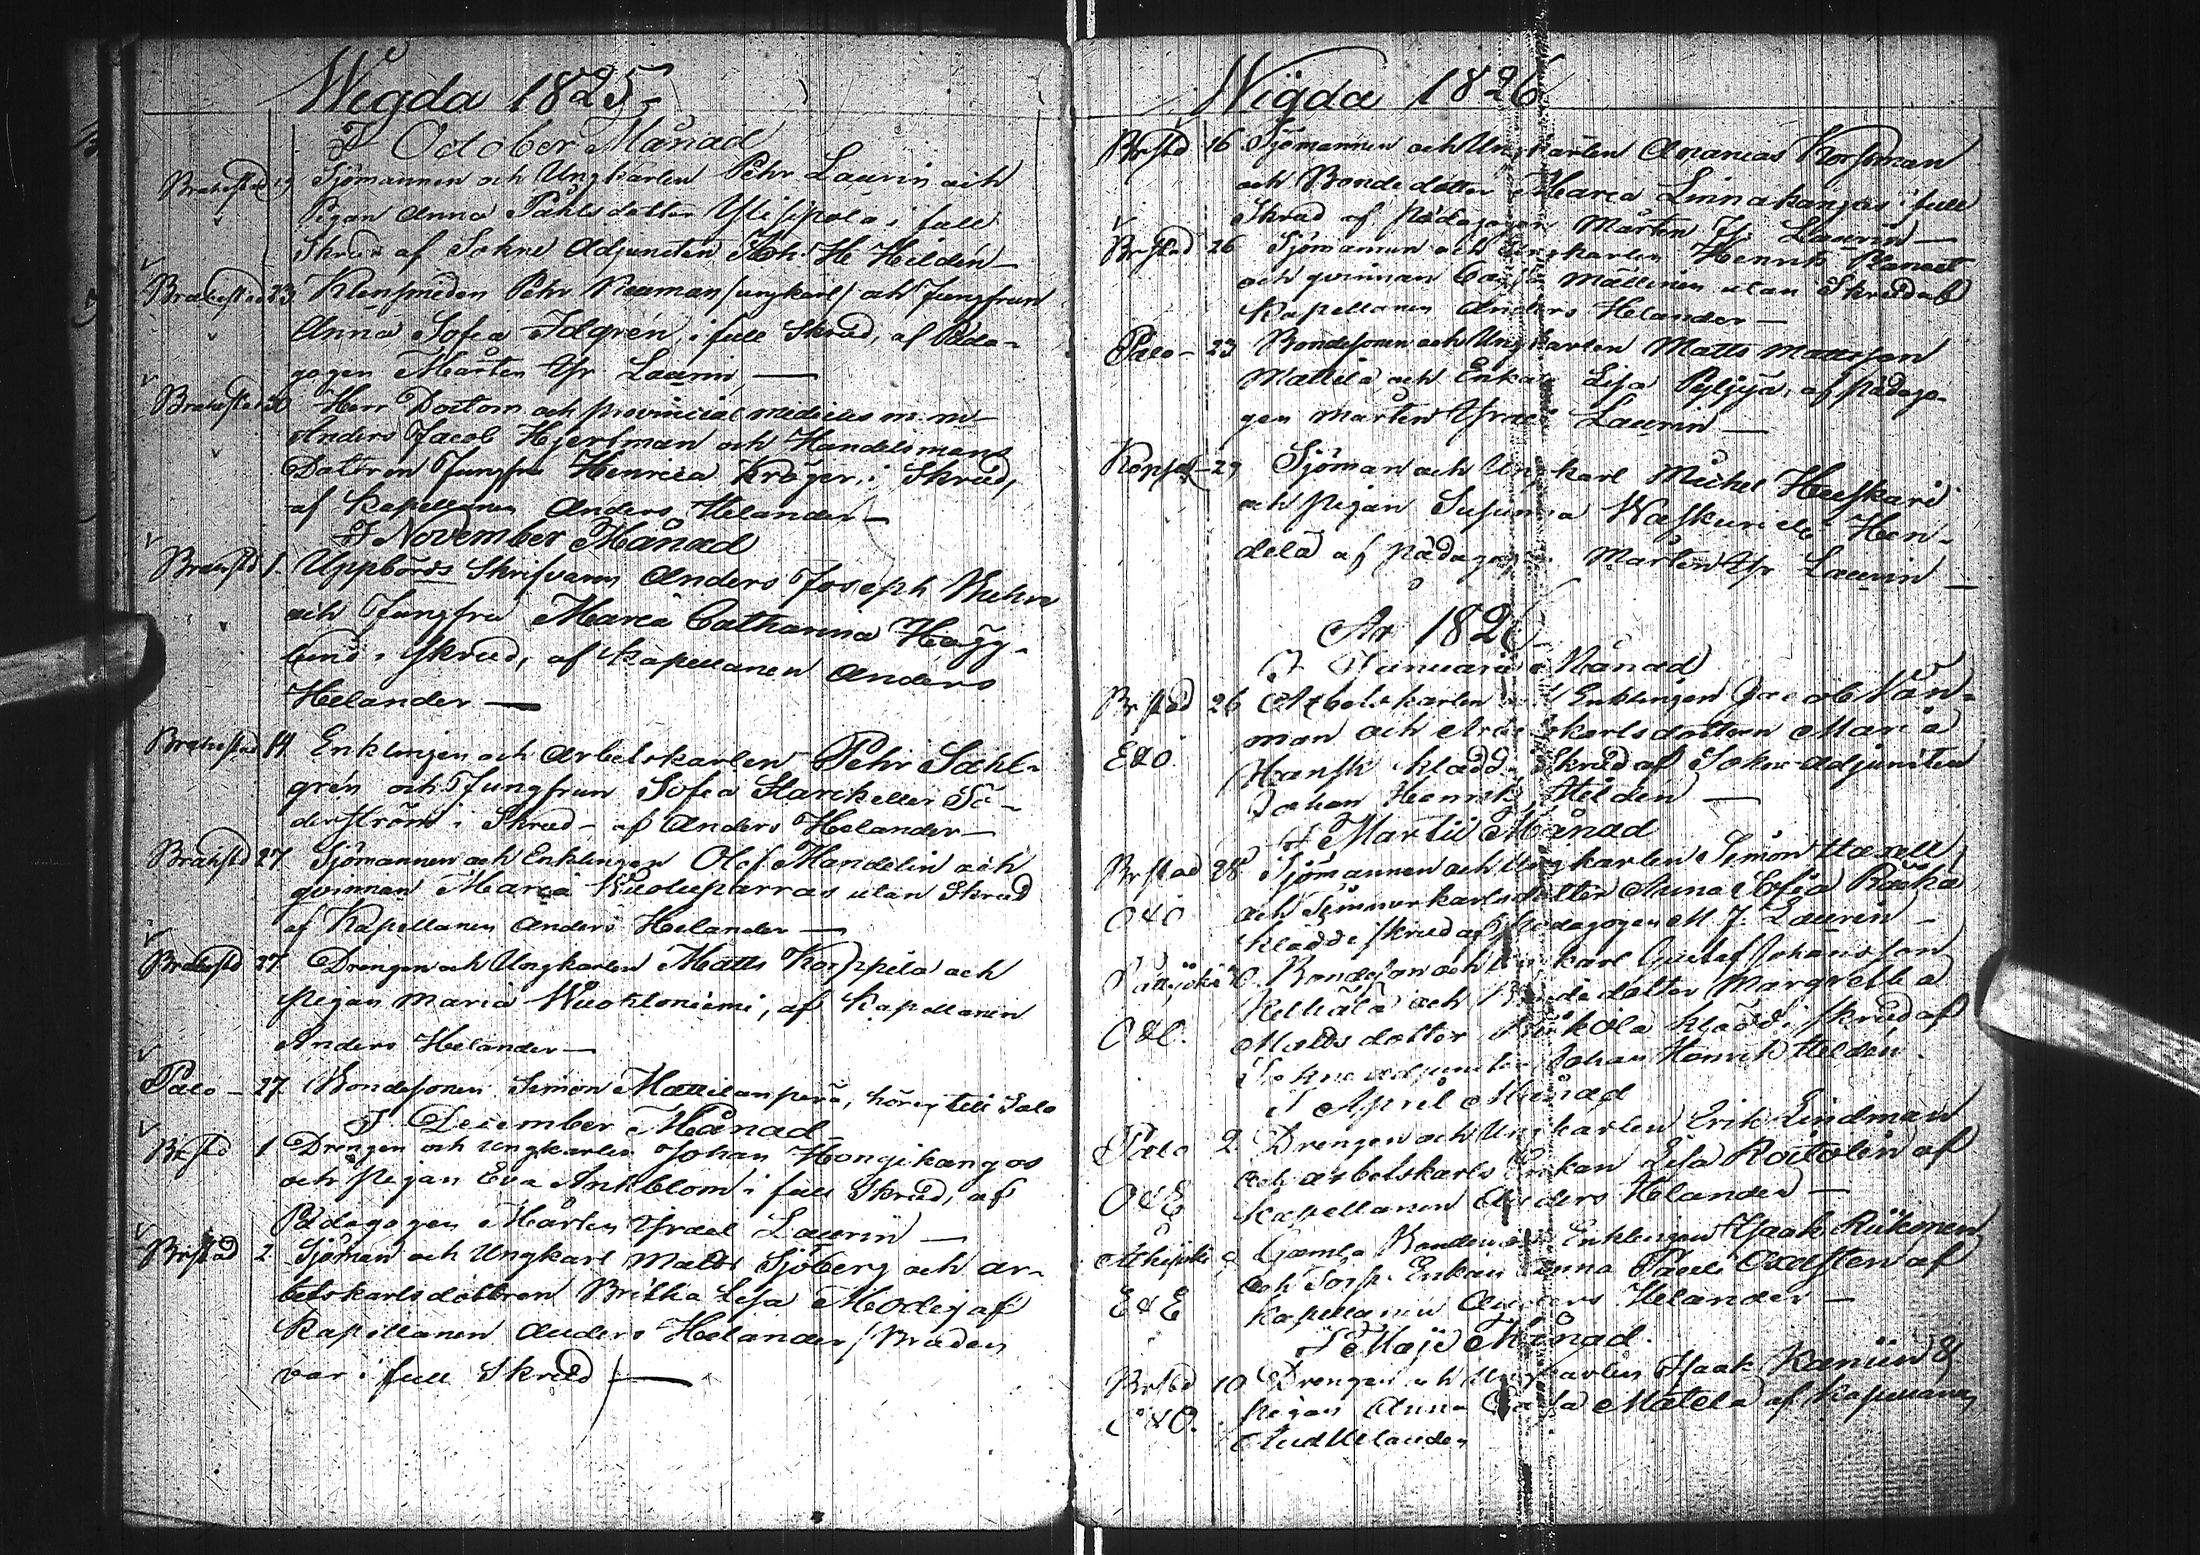 Wigda 1825
I October Månad
Brahestad 19 Sjömannen och Ungkarlen Pehr Laurin och
Pigan Anna Påhlsdotter Ylisipola i full
Skrud af Sokne Adjuncten Joh. H Helden
Brahestad 23 Klensmeden Pehr Neuman /ungkarl/ och Jungfrun
Anna Sofia Idgrén, i full Skrud, af Päda-
gogen Mårten Isr. Laurin
Brahestad 30 Herr Doctorn och provincial medicus m: m-
Anders Jacob Hjertman och Handelsmans
Dottren Jungfru Henrica Kröger, i Skrud,
af Kapellanen Anders Helander
I November Månad
Brahestd 1. Uppbörds Skrifvaren Anders Joseph
och Jungfru Maria Catharina Hägg-
lund i Skrud, af Kapellanen Anders
Helander
Brahestad 14 Enklingen och Arbetskarlen Pehr Sahl-
grén och Jungfrun Sofia Starck eller Sö-
derström i Skrud - af Anders Helander
Brahestd 27 Sjömannen och Enklingen Olof Mandelin och
qvinnan Maria Wuoluparras utan Skrud
af Kapellanen Anders Helander
Brahestd 27 Drengen och Ungkarlen Matts Korppila och
Pigan Maria Wuoktoniemi, af Kapellanen
Anders Helander
Palo - 27 Bondesonen Simon Mattilanperä, hörer till Salo
I December Månad
Brstd 1 Drengen och Ungkarlen Johan Hongikangas
och Pigan Eva Ankblom i full Skrud, af
Pädagogen Mårten Israel Laurin
Brstad 2 Sjöman och Ungkarl Matts Sjöberg och ar-
betskarlsdottren Britha Lisa Modig af
Kapellanen Anders Helander /Bruden
var i full Skrud/
Wigda 1826
Brstd 16 Sjömannen och Ungkarlen Ananias Korsman
och Bonde dotter Maria Linnakangas i full
Skrud af Pädagogen Mårten Is. Laurin
Brstad 26 Sjömannen och Ungkarlen Henrik Planect
och qvinnan Cajsa Mällinen utan Skrud af
Kapellanen Anders Helander
Palo - 23 Bondesonen och Ungkarlen Matts Mattsson
Mattila och Enkan Lisa Pyljyjä, af Pädago-
gen Mårten Israel Laurin
Koppsa - 29 Sjöman och Ungkarl Michel Heiskari
och Pigan Susanna Waskuri eller Hen-
delä af pädagogen Mårten Isr Laurin
År 1826
I Januarii Månad
Brstad 26 Arbetskarlen och Enklingen Jacob Nän-
man och Arbetskarlsdottern Maria
E&O. Hansk klädd i Skrud af Sokne-adjuncten
Johan Henrik Helden
I Martii Månad
Brstad 28 Sjömannen och Ungkarlen Simon Uxell
och Timmerkarlsdotter Anna Sofia Raska
O&O klädd i skrud af Pedagogen M. J. Laurin
Pattjoki Bondeson och Ungkarl Gustaf Johansson
Kelhälä och Bondedotter Margretha
O&O. Mattsdotter klädd i skrud af
Sokneadjuncten Johan Henrik Helden.
I April Månad
Palo 2. Drengen och Ungkarlen Erik Lindman
och arbetskarls Enkan Lisa Roitolin af
O&E Kapellanen Anders Helander
Gamla Bonden och Enklingen Isaak Riikonen
och Torp. Enkan Anna Påhls Oxasten af
E&E Kapellanen Anders Helander
I Maji Månad.
Brstd 10 Drengen och Ungkarlen Isaak Kaniin &
pigan Anna Cajsa Matela af Kapellanen
O&O. And Helander